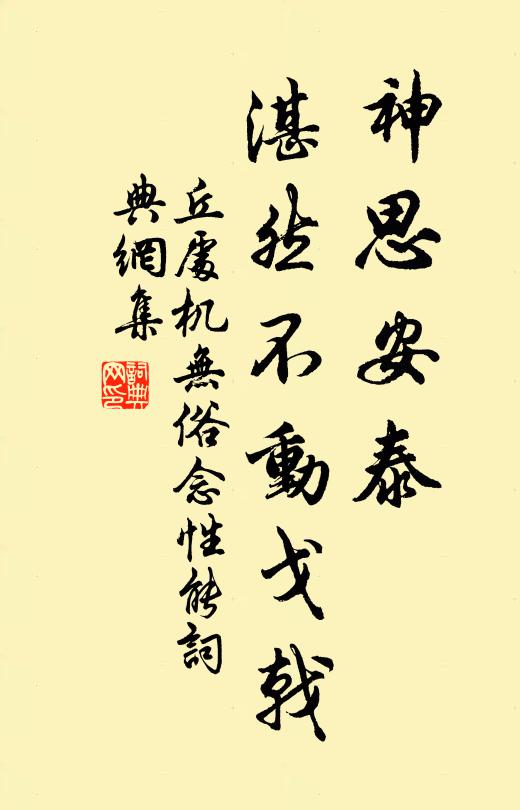 神思安泰
湛然不動戈戟
丘處机無俗念性能詞
典網集
詞典網印